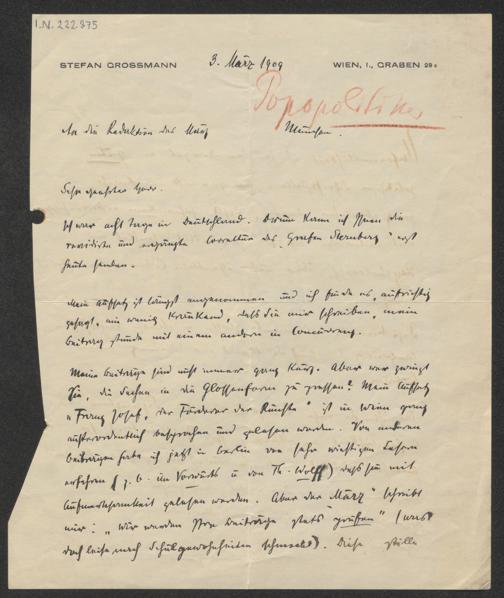 I.N. 222.875
STEFAN GROSSMANN 3. März 1909 WIEN, I., GRABEN 29 a
Popopolitiker
An die Redaktion des März München.
Sehr geehrter Herr.
Ich war acht Tage in Deutschland. Darum kann ich Ihnen die
revidirte und ergänzte Correktur des „Grafen Sternberg" erst
heute senden.
Mein Aufsatz ist längst angenommen und ich finde es, aufrichtig
gesagt, ein wenig kränkend, daß Sie mir schreiben, mein
Beitrag stünde mit einem andern in Concurrenz.
Meine Beiträge sind nicht immer ganz kurz. Aber wer zwingt
Sie, die Sachen in die Glossenform zu pressen? Mein Aufsatz
„Franz Josef, der Förderer der Künste" ist in Wien ganz
außerordentlich besprochen und gelesen worden. Von anderen
Beiträgen habe ich jetzt in Berlin von sehr wichtigen Lesern
erfahren (z. B. im Vorwärts u von Th. Wolff) daß sie mit
Aufmerksamkeit gelesen werden. Aber der „März" schreibt
mir: „Wir werden Ihre Beiträge stets prüfen" (was
doch leise nach Schulgewohnheiten schmeckt). Diese stille